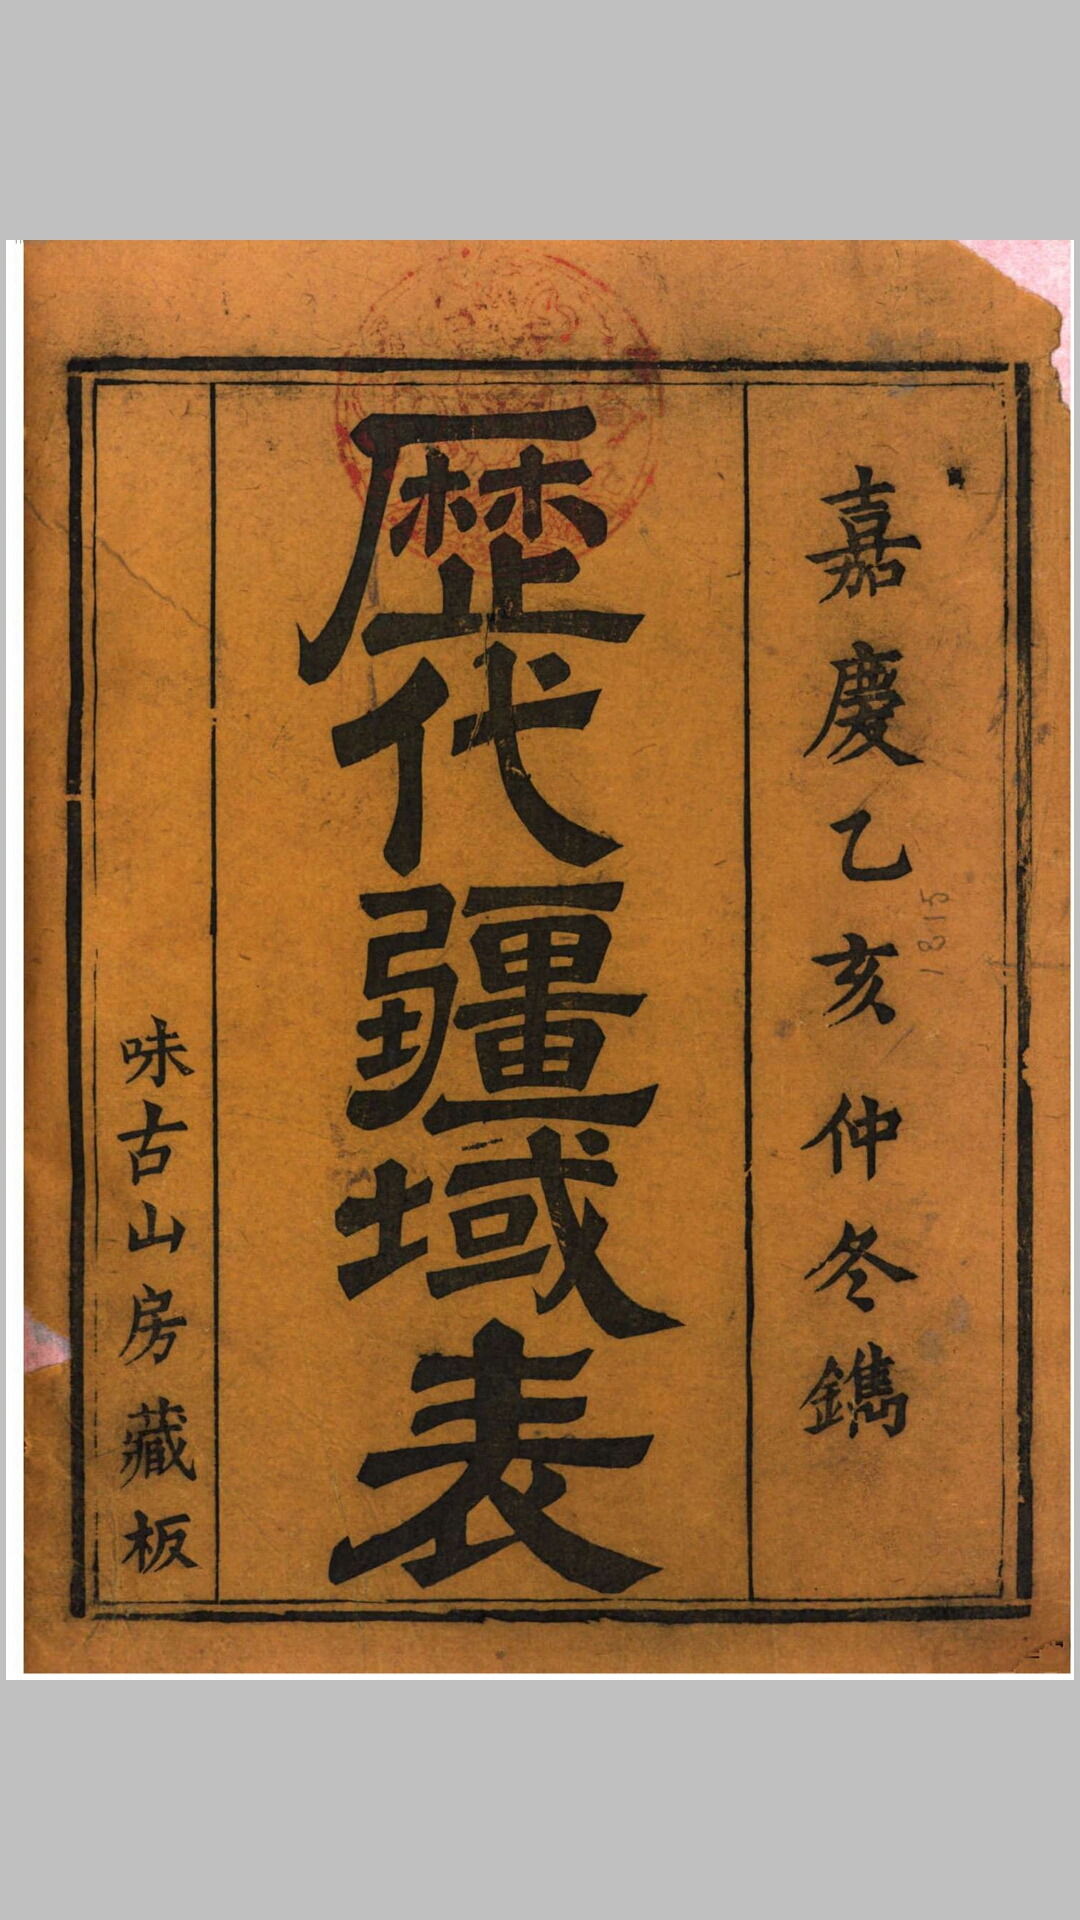 嘉慶乙亥仲冬鐫
1815
歷代疆域表
味古山房藏板